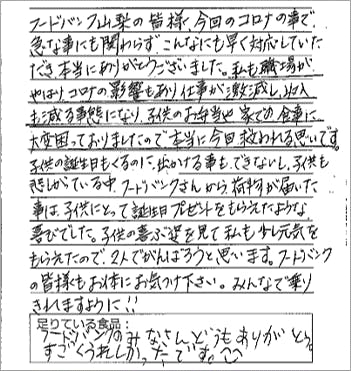 フードバンク山梨の皆様、今回のコロナの事で、
急な事にも関わらず、こんなにも早く対応していた
だき本当にありがとうございました。私も職場が
やはりコロナの影響もあり仕事が激減し、収入
も減る事態になり、子供のお弁当や家での食事に
大変困っておりましたので本当に今回救われる思いです。
子供の誕生日もくるのに、出かける事もできないし、子供も
悲しがている中フードバンクさんから荷物が届いた
事は、子供にとって誕生日プレゼントをもらえたような
喜びでした。子供の喜ぶ姿を見て私も少し元気を
もらえたので、2人でがんばろうと思います。フードバンク
の皆様もお体にお気をつけ下さい。みんなで乗り
きれますように!!
足りている食品:
フードバンクのみなさんどうもありがとう。
すごくうれしかったです。^^